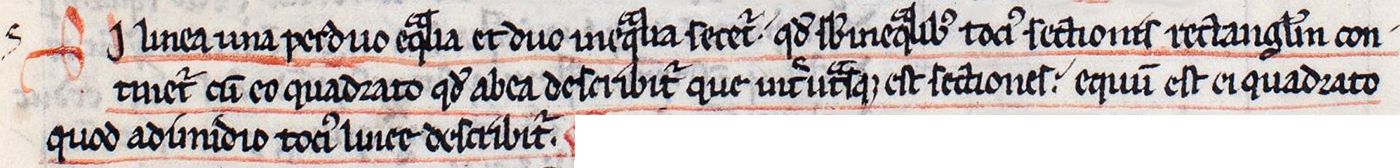 5 SI linea una per duo eq̅lia et duo ineq̅lia secet᷑ qd̕ sb̕ ineq̅lib᷒ toci᷒ sectionis rectangl̕m con
tinet᷑ cū eo quadrato qd̕ ab ea describit᷑ que int̕ ut̅sq; est sectiones. equū est ei quadrato
quod a dimidio toci᷒ linee describit᷑.